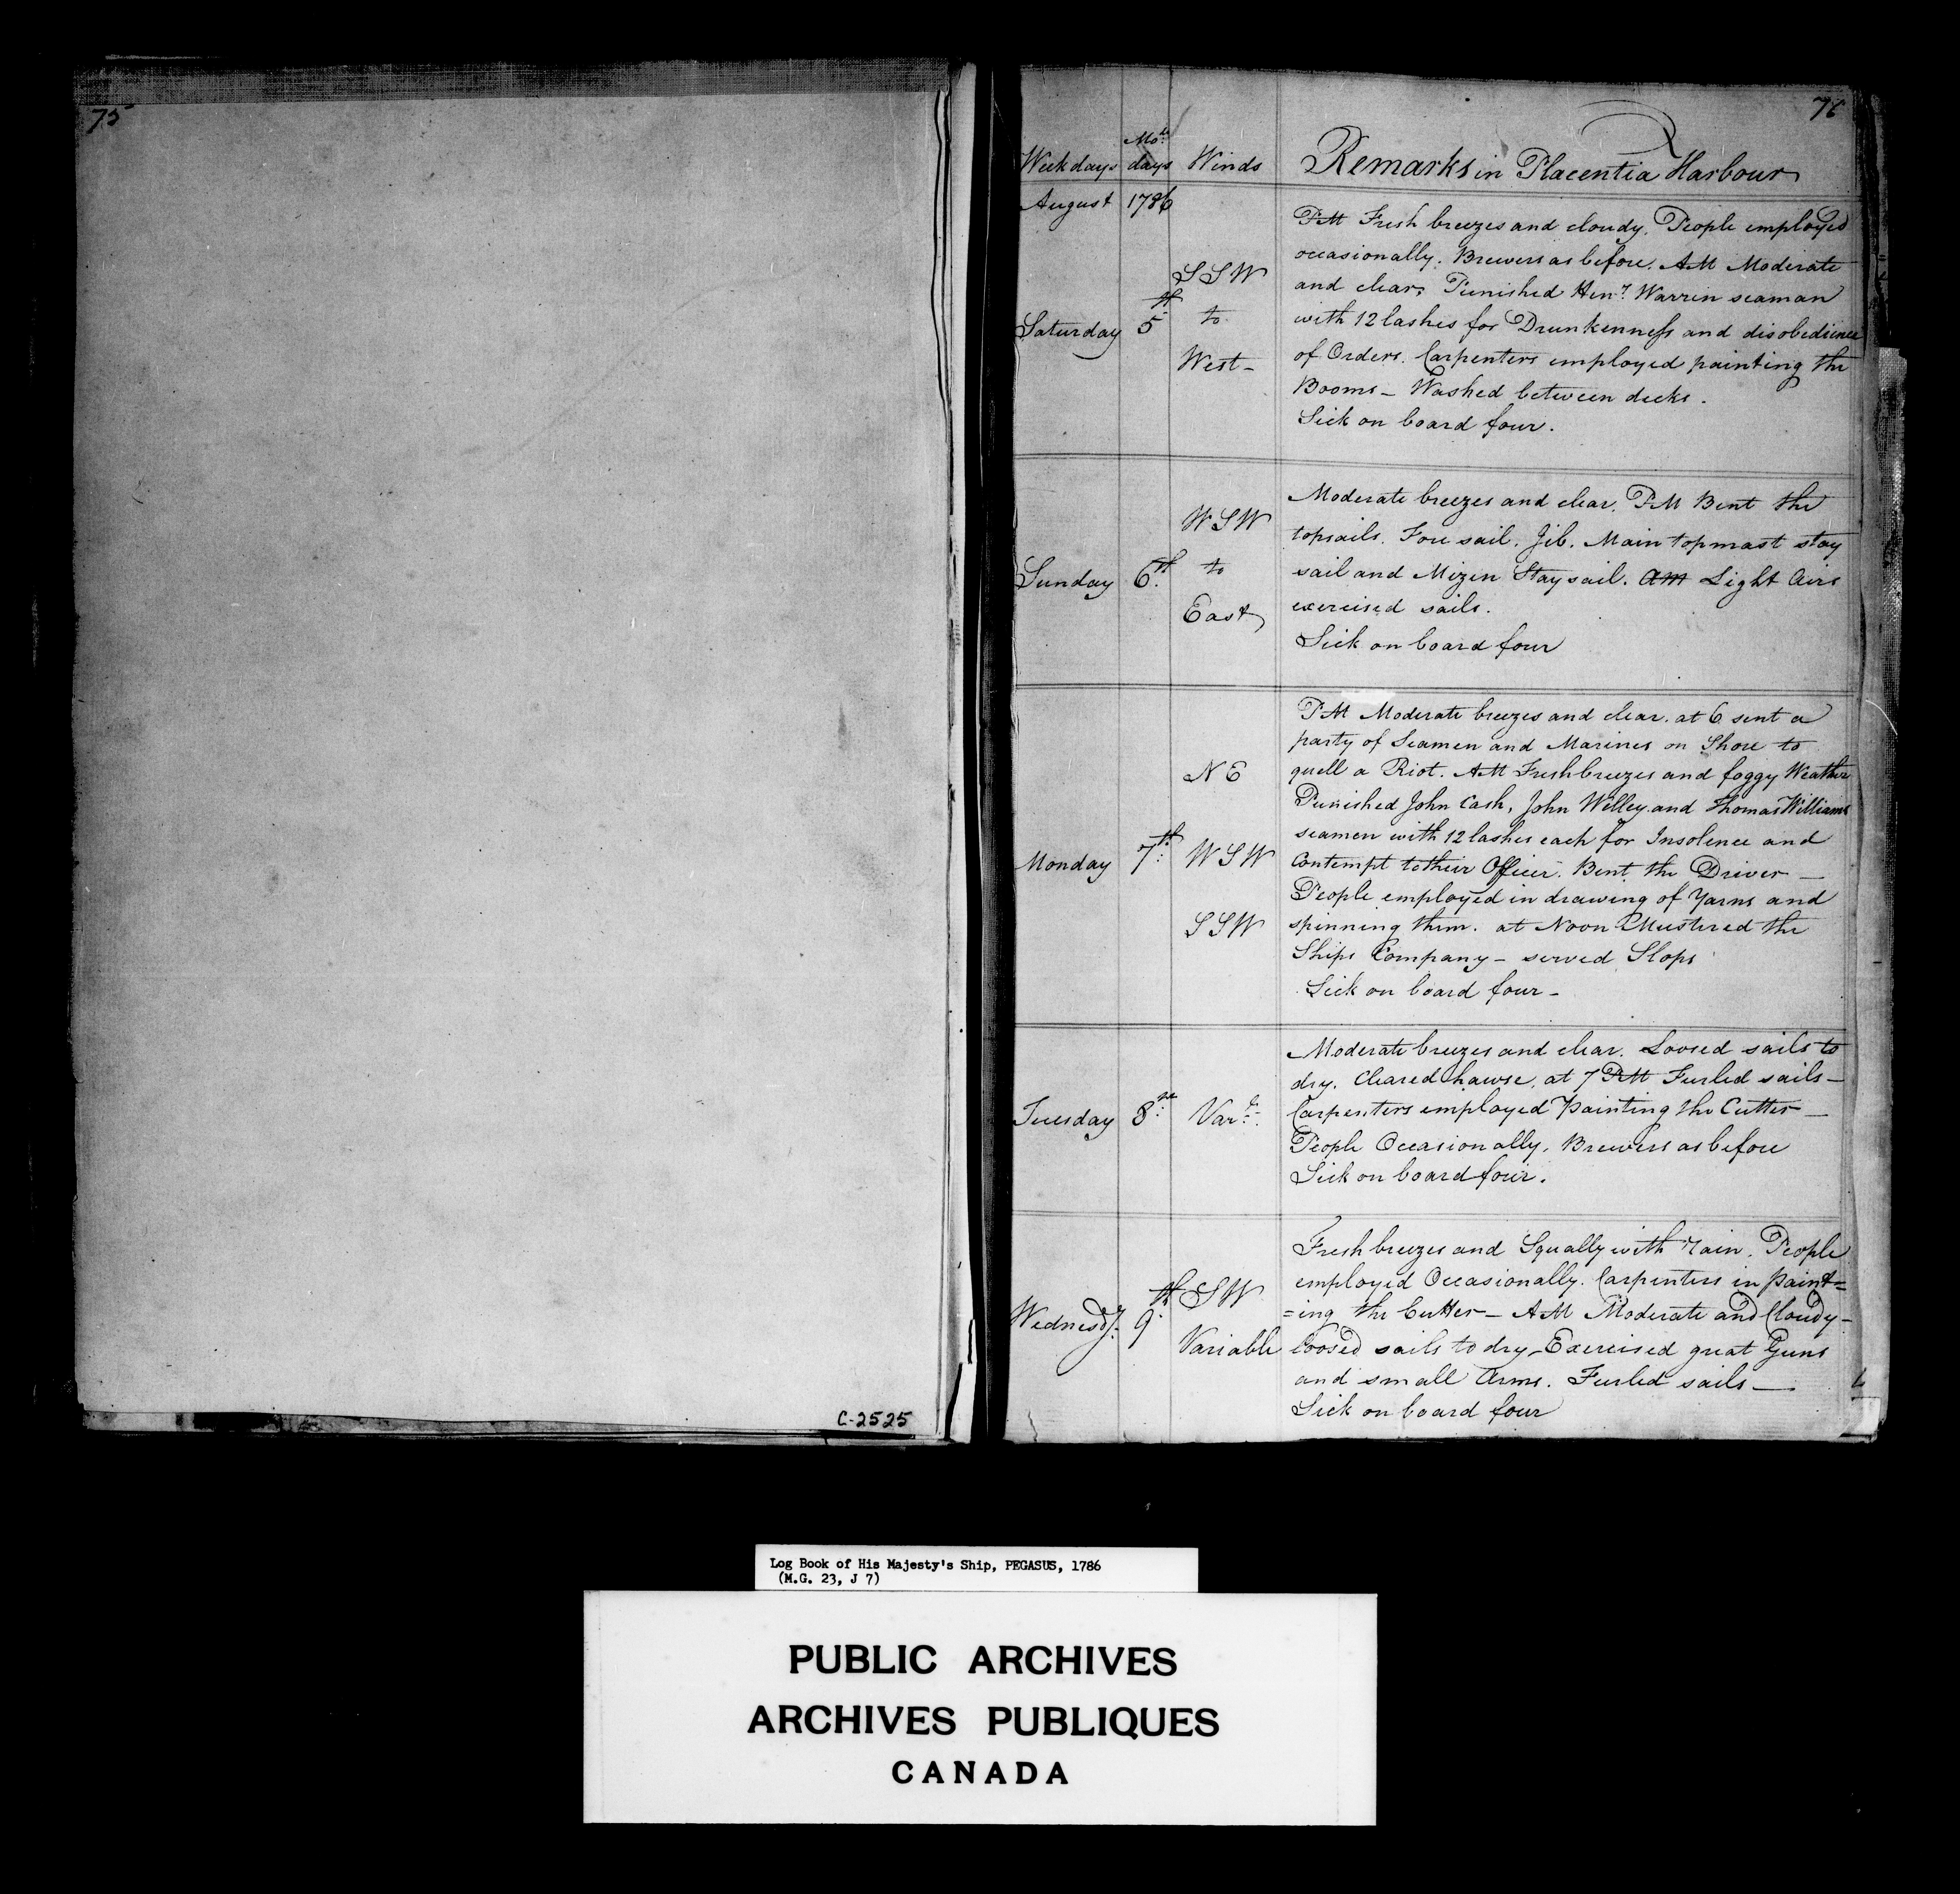 75
76
Week days Moth days Winds Remarks in Placentia Harbour
August 1786
Saturday 5th SSW to West-
PM Fresh breezes and cloudy. People employed
occasionally. Brewers as before. AM Moderate
and clear, Punished Heny. Warrin seaman
with 12 lashes for Drunkenness and disobedience
of Orders. Carpenters employed painting the
Booms - Washed between decks.
Sick on board four.
Sunday 6th. WSW to East
Moderate breezes and clear. PM Bent the
topsails. Fore sail. Jib. Main topmast stay
sail and Mizen Stay sail. AM Light Airs
exercised sails.
Sick on board four
Monday 7th: NE WSW SSW
PM Moderate breezes and clear. at 6 sent a
party of Seamen and Marines on Shore to
quell a Riot. AM Fresh breezes and foggy Weather
Punished John Cash, John Willey and Thomas Williams
seamen with 12 lashes each for Insolence and
Contempt to their Officer. Bent the Driver —
People employed in drawing of Yarns and
spinning them. at Noon Mustered the
Ships Company - served Slops
Sick on board four -
Tuesday 8th: Varle.
Moderate breezes and clear. Loosed sails to
dry. Cleared hawse. at 7 PM Furled sails -
Carpenters employed Painting the Cutter —
People Occasionally. Brewers as before
Sick on board four.
Wednesdy. 9th SW Variable
Fresh breezes and Squally with rain. People
employed Occasionally. Carpenters in paint=
=ing the Cutter - AM Moderate and Cloudy -
loosed sails to dry - Exercised great Guns
and small Arms. Furled sails —
Sick on board four
C-2525
Log Book of His Majesty's Ship, PEGASUS, 1786
(M.G. 23, J 7)
PUBLIC ARCHIVES
ARCHIVES PUBLIQUES
CANADA